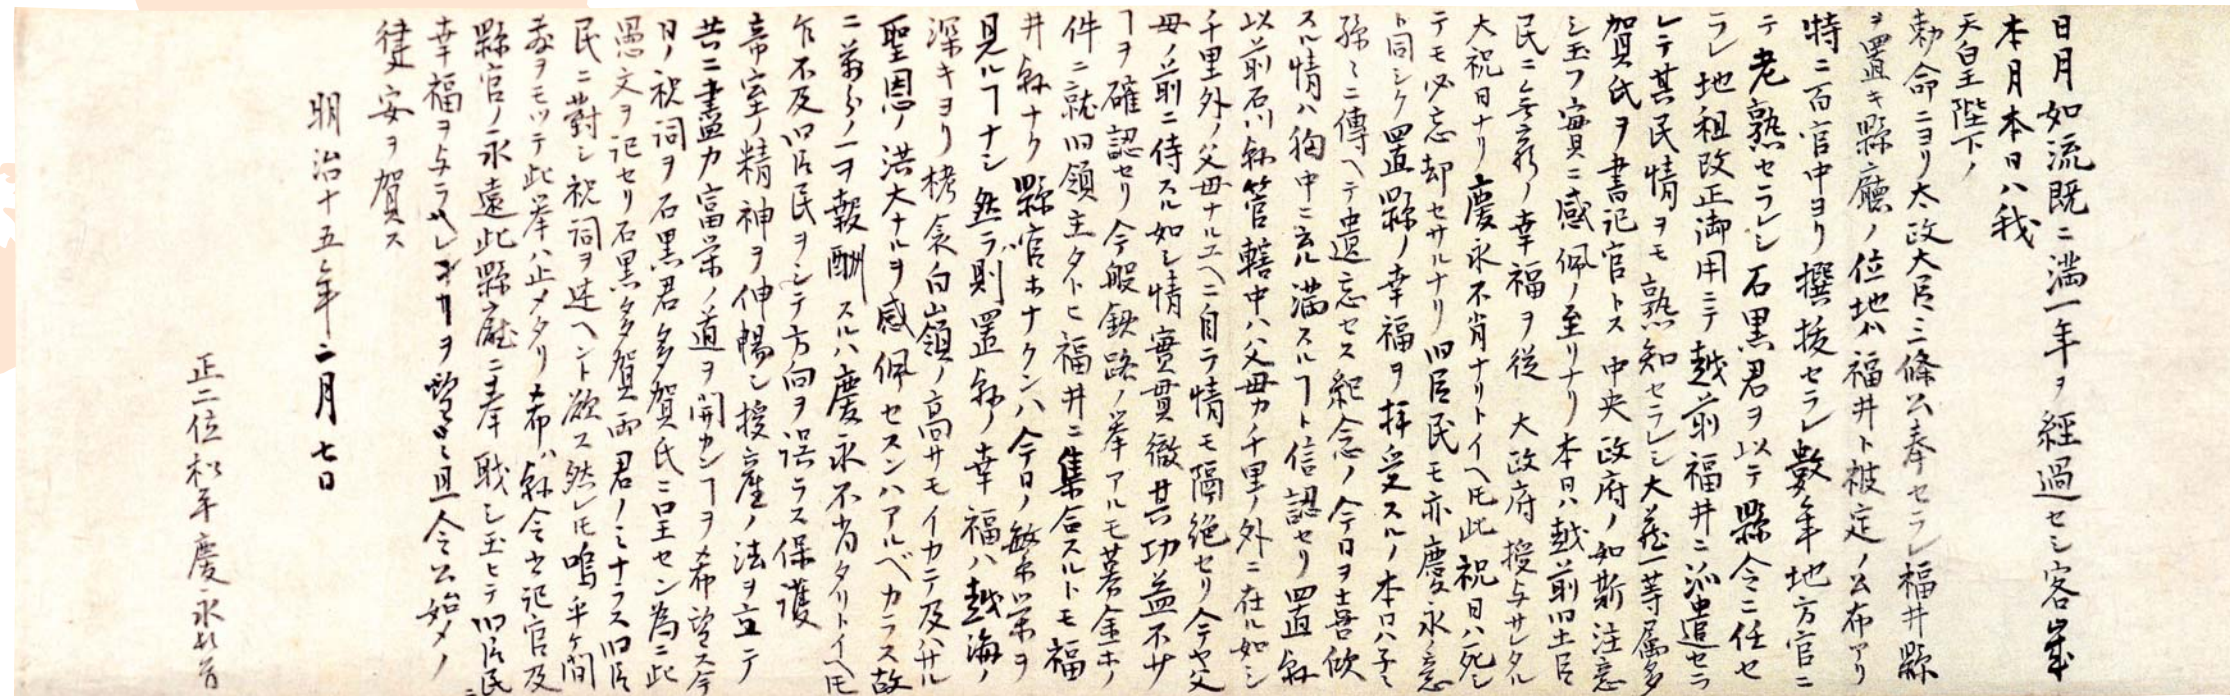 日月如流既ニ満一年ヲ経過セシ客歳
本月本日ハ我
天皇陛下ノ
勅命ニヨリ太政大臣三條公奉セラレ福井縣
ヲ置キ縣廳ノ位地ハ福井ト被定ノ公布アリ
特ニ百官中ヨリ撰抜セラレ數年地方官ニ
テ老熟セラレシ石黒君ヲ以テ縣令ニ任セ
ラレ地租改正御用ニテ越前福井ニ派遣セラ
レテ其民情ヲモ熟知セラレシ大蔵一等属多
賀氏ヲ書記官トス中央政府ノ如斯注意
シ玉フ實ニ感佩ノ至リナリ本日ハ越前旧士臣
民ニ無疆ノ幸福ヲ従大政府授与サレタル
大祝日ナリ慶永不肖ナリトイヘ𪜈此祝日ハ死シ
テモ必忘却セサルナリ旧臣民モ亦慶永ノ意
ト同シク置縣ノ幸福ヲ拝受スルノ本日ハ子々
孫々ニ傳ヘテ遺忘セス紀念ノ今日ヲ喜欣
スル情ハ胸中ニ充ル満スルヿト信認セリ置縣
以前石川縣管轄中ハ父母カ千里ノ外ニ在ル如シ
千里外ノ父母ナルユヘニ自ラ情モ隔絶セリ今ヤ父
母ノ前ニ侍スル如シ情實貫徹其功益不少
ヿヲ確認セリ今般鉄路ノ挙アルモ募金ホノ
件ニ就旧領主タトヒ福井ニ集合スルトモ福
井縣ナク縣官ホナクンハ今日ノ繁榮ヲ
見ルヿナシ然ラハ則置縣ノ幸福ハ越海ノ
深キヨリ梼衾白山嶺ノ高サモイカテ及ハサル
聖恩ノ洪大ナルヲ感佩セスンハアルベカラス故
ニ萬分ノ一ヲ報酬スルハ慶永不肖タリトイヘ𪜈
乍不及旧臣民ヲシテ方向ヲ誤ラス保護
帝室ノ精神ヲ伸暢シ授産ノ法ヲ立テ
共ニ盡力富栄ノ道ヲ開カンヿヲ希望ス今
日ノ祝詞ヲ石黒君多賀氏ニ呈セン為ニ此
愚文ヲ記セリ石黒多賀両君ノミナラス旧臣
民ニ對シ祝詞ヲ述ヘント欲ス然レ𪜈嗚乎ケ間
敷ヲモツテ此挙ハ止メタリ希ハ縣令書記官及
縣官ノ永遠此縣廳ニ奉職シ玉ヒテ旧臣民ニ
幸福ヲ与ラレンヿヲ誓フ且令公始メノ
健安ヲ賀ス
明治十五年二月七日
正二位松平慶永頓首